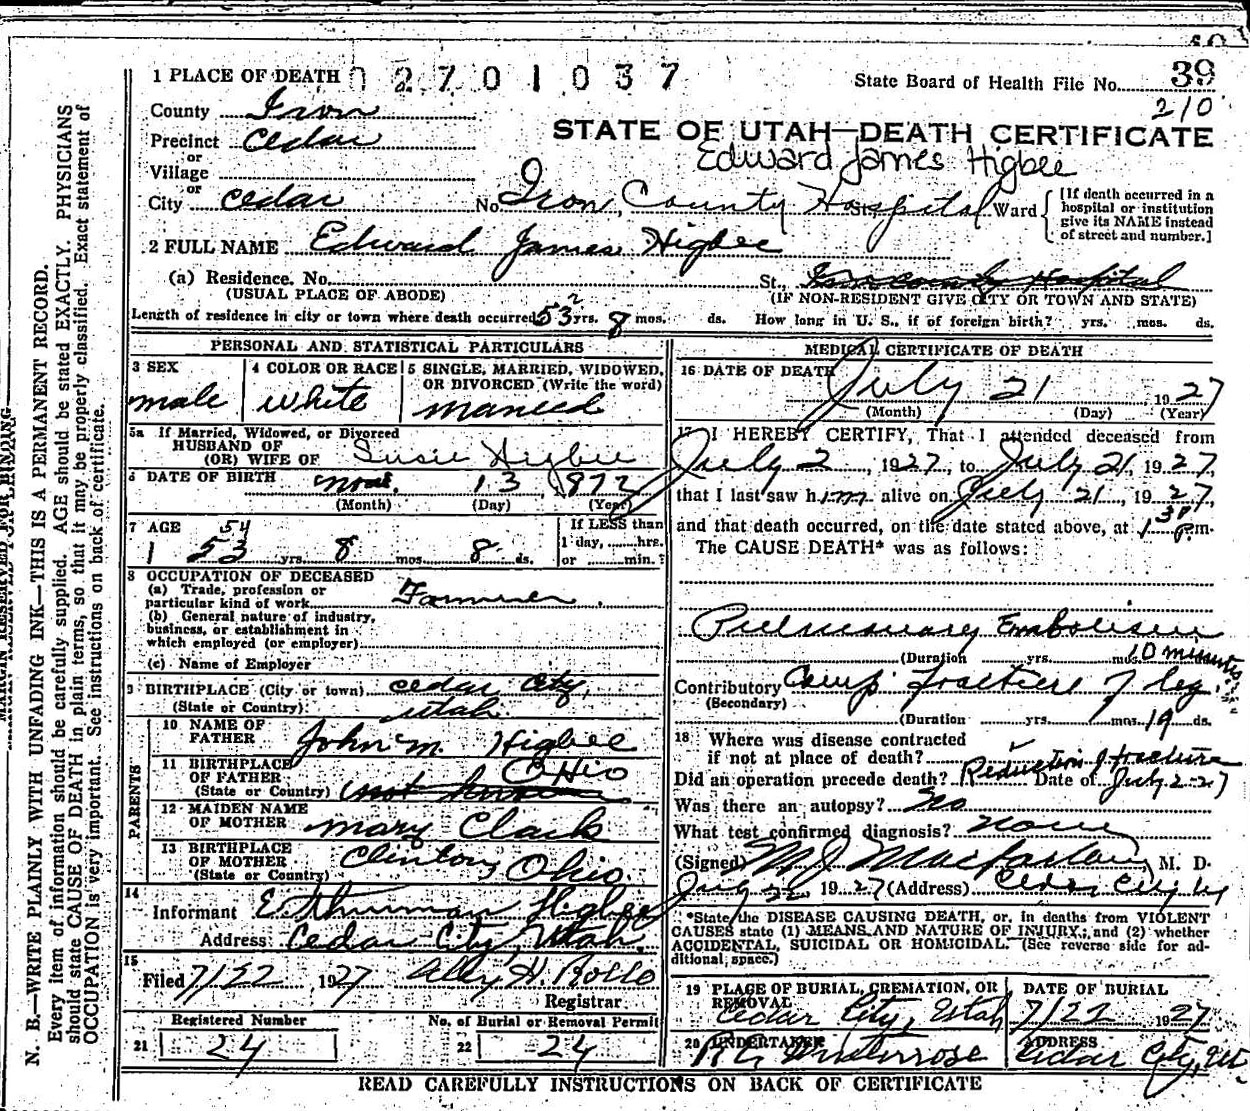 1 PLACE OF DEATH 02701037
State Board of Health File No. 39
210
County Iron
STATE OF UTAH—DEATH CERTIFICATE
Precinct Cedar
Edward James Higbee
or
Village
or
City Cedar No. Iron County Hospital St. Ward
[If death occurred in a
hospital or institution
give its NAME instead
of street and number.]
2 FULL NAME Edward James Higbee
(a) Residence. No. St., Iron County Hospital
(USUAL PLACE OF ABODE) (IF NON-RESIDENT GIVE CITY OR TOWN AND STATE)
Length of residence in city or town where death occurred 53 yrs. 8 mos. ds. How long in U. S., if of foreign birth? yrs. mos. ds.
PERSONAL AND STATISTICAL PARTICULARS
3 SEX 4 COLOR OR RACE 5 SINGLE, MARRIED, WIDOWED,
OR DIVORCED (Write the word)
male white married
5a If Married, Widowed, or Divorced
HUSBAND OF
(OR) WIFE OF Susie Higbee
6 DATE OF BIRTH Nov. 13 1872
(Month) (Day) (Year)
7 AGE 54 If LESS than
1 day, hrs.
53 yrs. 8 mos. 8 ds. or min.?
8 OCCUPATION OF DECEASED
(a) Trade, profession or
particular kind of work Farmer
(b) General nature of industry,
business, or establishment in
which employed (or employer)
(c) Name of Employer
9 BIRTHPLACE (City or town) Cedar City,
(State or Country) Utah
PARENTS
10 NAME OF
FATHER John M. Higbee
11 BIRTHPLACE
OF FATHER Ohio
(State or Country) not known
12 MAIDEN NAME
OF MOTHER Mary Clark
13 BIRTHPLACE
OF MOTHER Clinton, Ohio
(State or Country)
14
Informant E. Thurman Higbee
Address Cedar City, Utah.
15
Filed 7/22 1927 H. Rollo
Registrar
Registered Number No. of Burial or Removal Permit
21 24 22 24
MEDICAL CERTIFICATE OF DEATH
16 DATE OF DEATH July 21 1927
(Month) (Day) (Year)
17 I HEREBY CERTIFY, That I attended deceased from
July 2, 1927, to July 21, 1927,
that I last saw him alive on July 21, 1927,
and that death occurred, on the date stated above, at 1 30 p.m.
The CAUSE DEATH* was as follows:
Pulmonary Embolism
(Duration yrs. mos. 10 minutes
Contributory Comp fracture of leg.
(Secondary)
(Duration yrs. mos. 19 ds.
18 Where was disease contracted
if not at place of death?
Did an operation precede death? Reduction of fracture Date of July 2-27
Was there an autopsy? No
What test confirmed diagnosis? none
(Signed) M J Macfarlane, M. D.
July 22, 1927 (Address) Cedar City Ut
*State the DISEASE CAUSING DEATH, or, in deaths from VIOLENT
CAUSES state (1) MEANS AND NATURE OF INJURY; and (2) whether
ACCIDENTAL, SUICIDAL OR HOMICIDAL. (See reverse side for ad-
ditional space.)
19 PLACE OF BURIAL, CREMATION, OR
REMOVAL
DATE OF BURIAL
Cedar City, Utah 7/22 1927
20 UNDERTAKER ADDRESS
Cedar City, Ut
READ CAREFULLY INSTRUCTIONS ON BACK OF CERTIFICATE
MARGIN RESERVED FOR BINDING
N. B.—WRITE PLAINLY WITH UNFADING INK—THIS IS A PERMANENT RECORD.
Every item of information should be carefully supplied. AGE should be stated EXACTLY. PHYSICIANS
should state CAUSE OF DEATH in plain terms, so that it may be properly classified. Exact statement of
OCCUPATION is very important. See instructions on back of certificate.